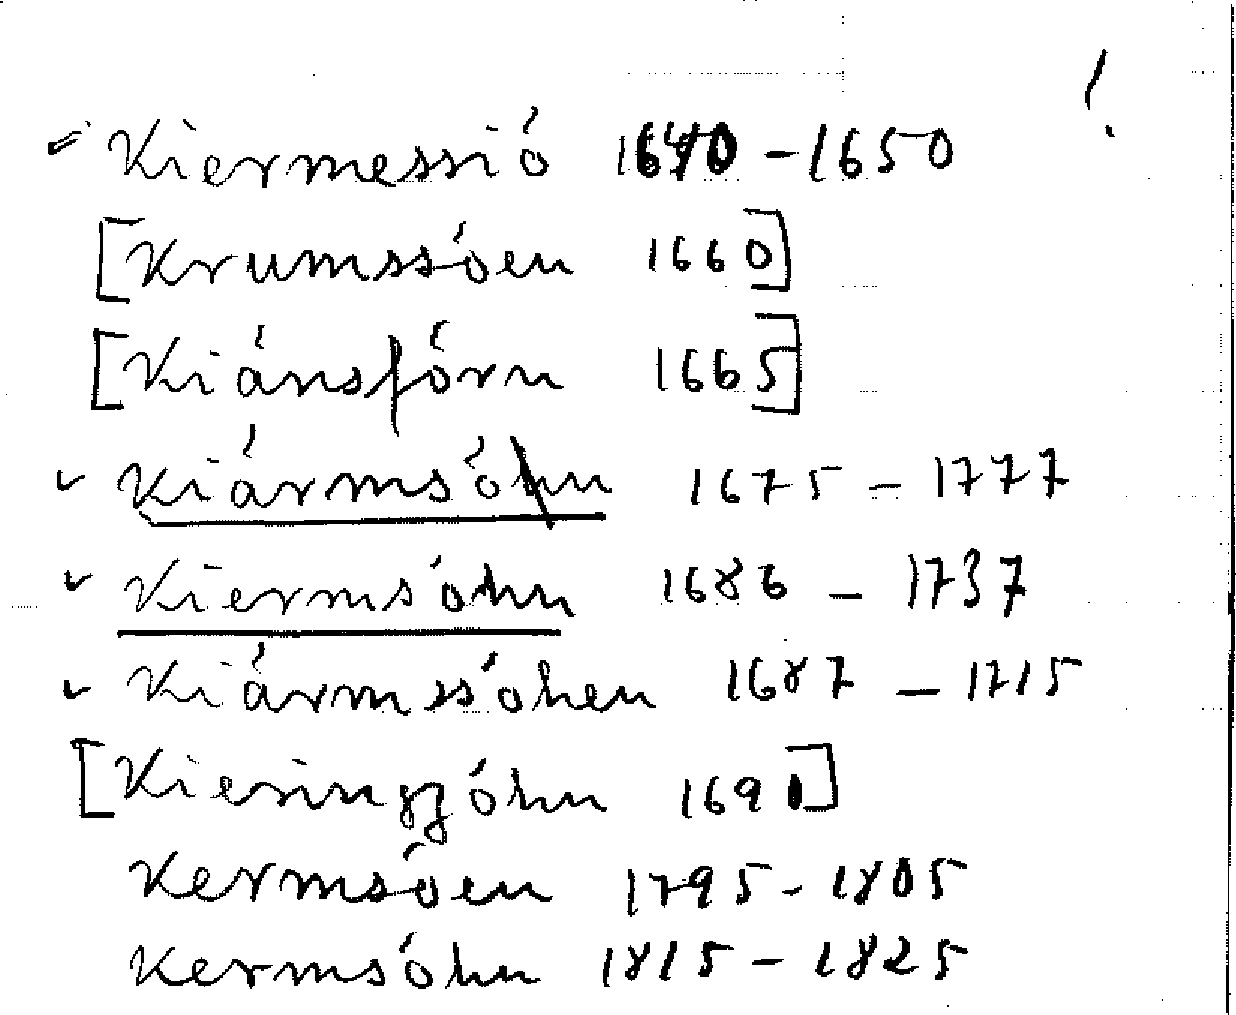 !
Kiermessió 1640 - 1650
[Krumssóen 1660]
[Kiánsfórn 1665]
✓ Kiármsóhn 1675 - 1777
✓ Kiermsóhn 1686 - 1737
✓ Kiármssóhen 1687 - 1715
[Kiesingzóhn 1690]
Kermsóen 1795 - 1805
Kermsóhn 1815 - 1825